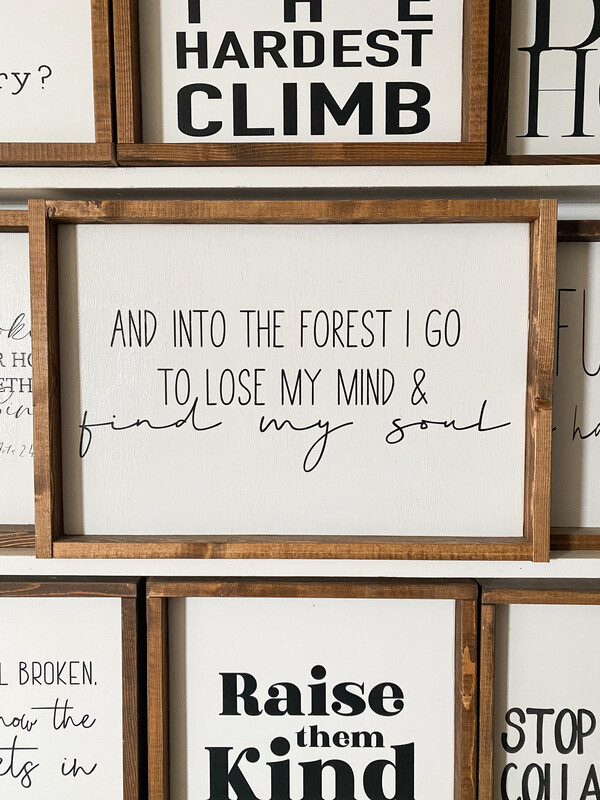 ry?
THE
HARDEST
CLIMB
AND INTO THE FOREST I GO
TO LOSE MY MIND &
find my soul
BROKEN.
the
in
Raise
them
Kind
STOP